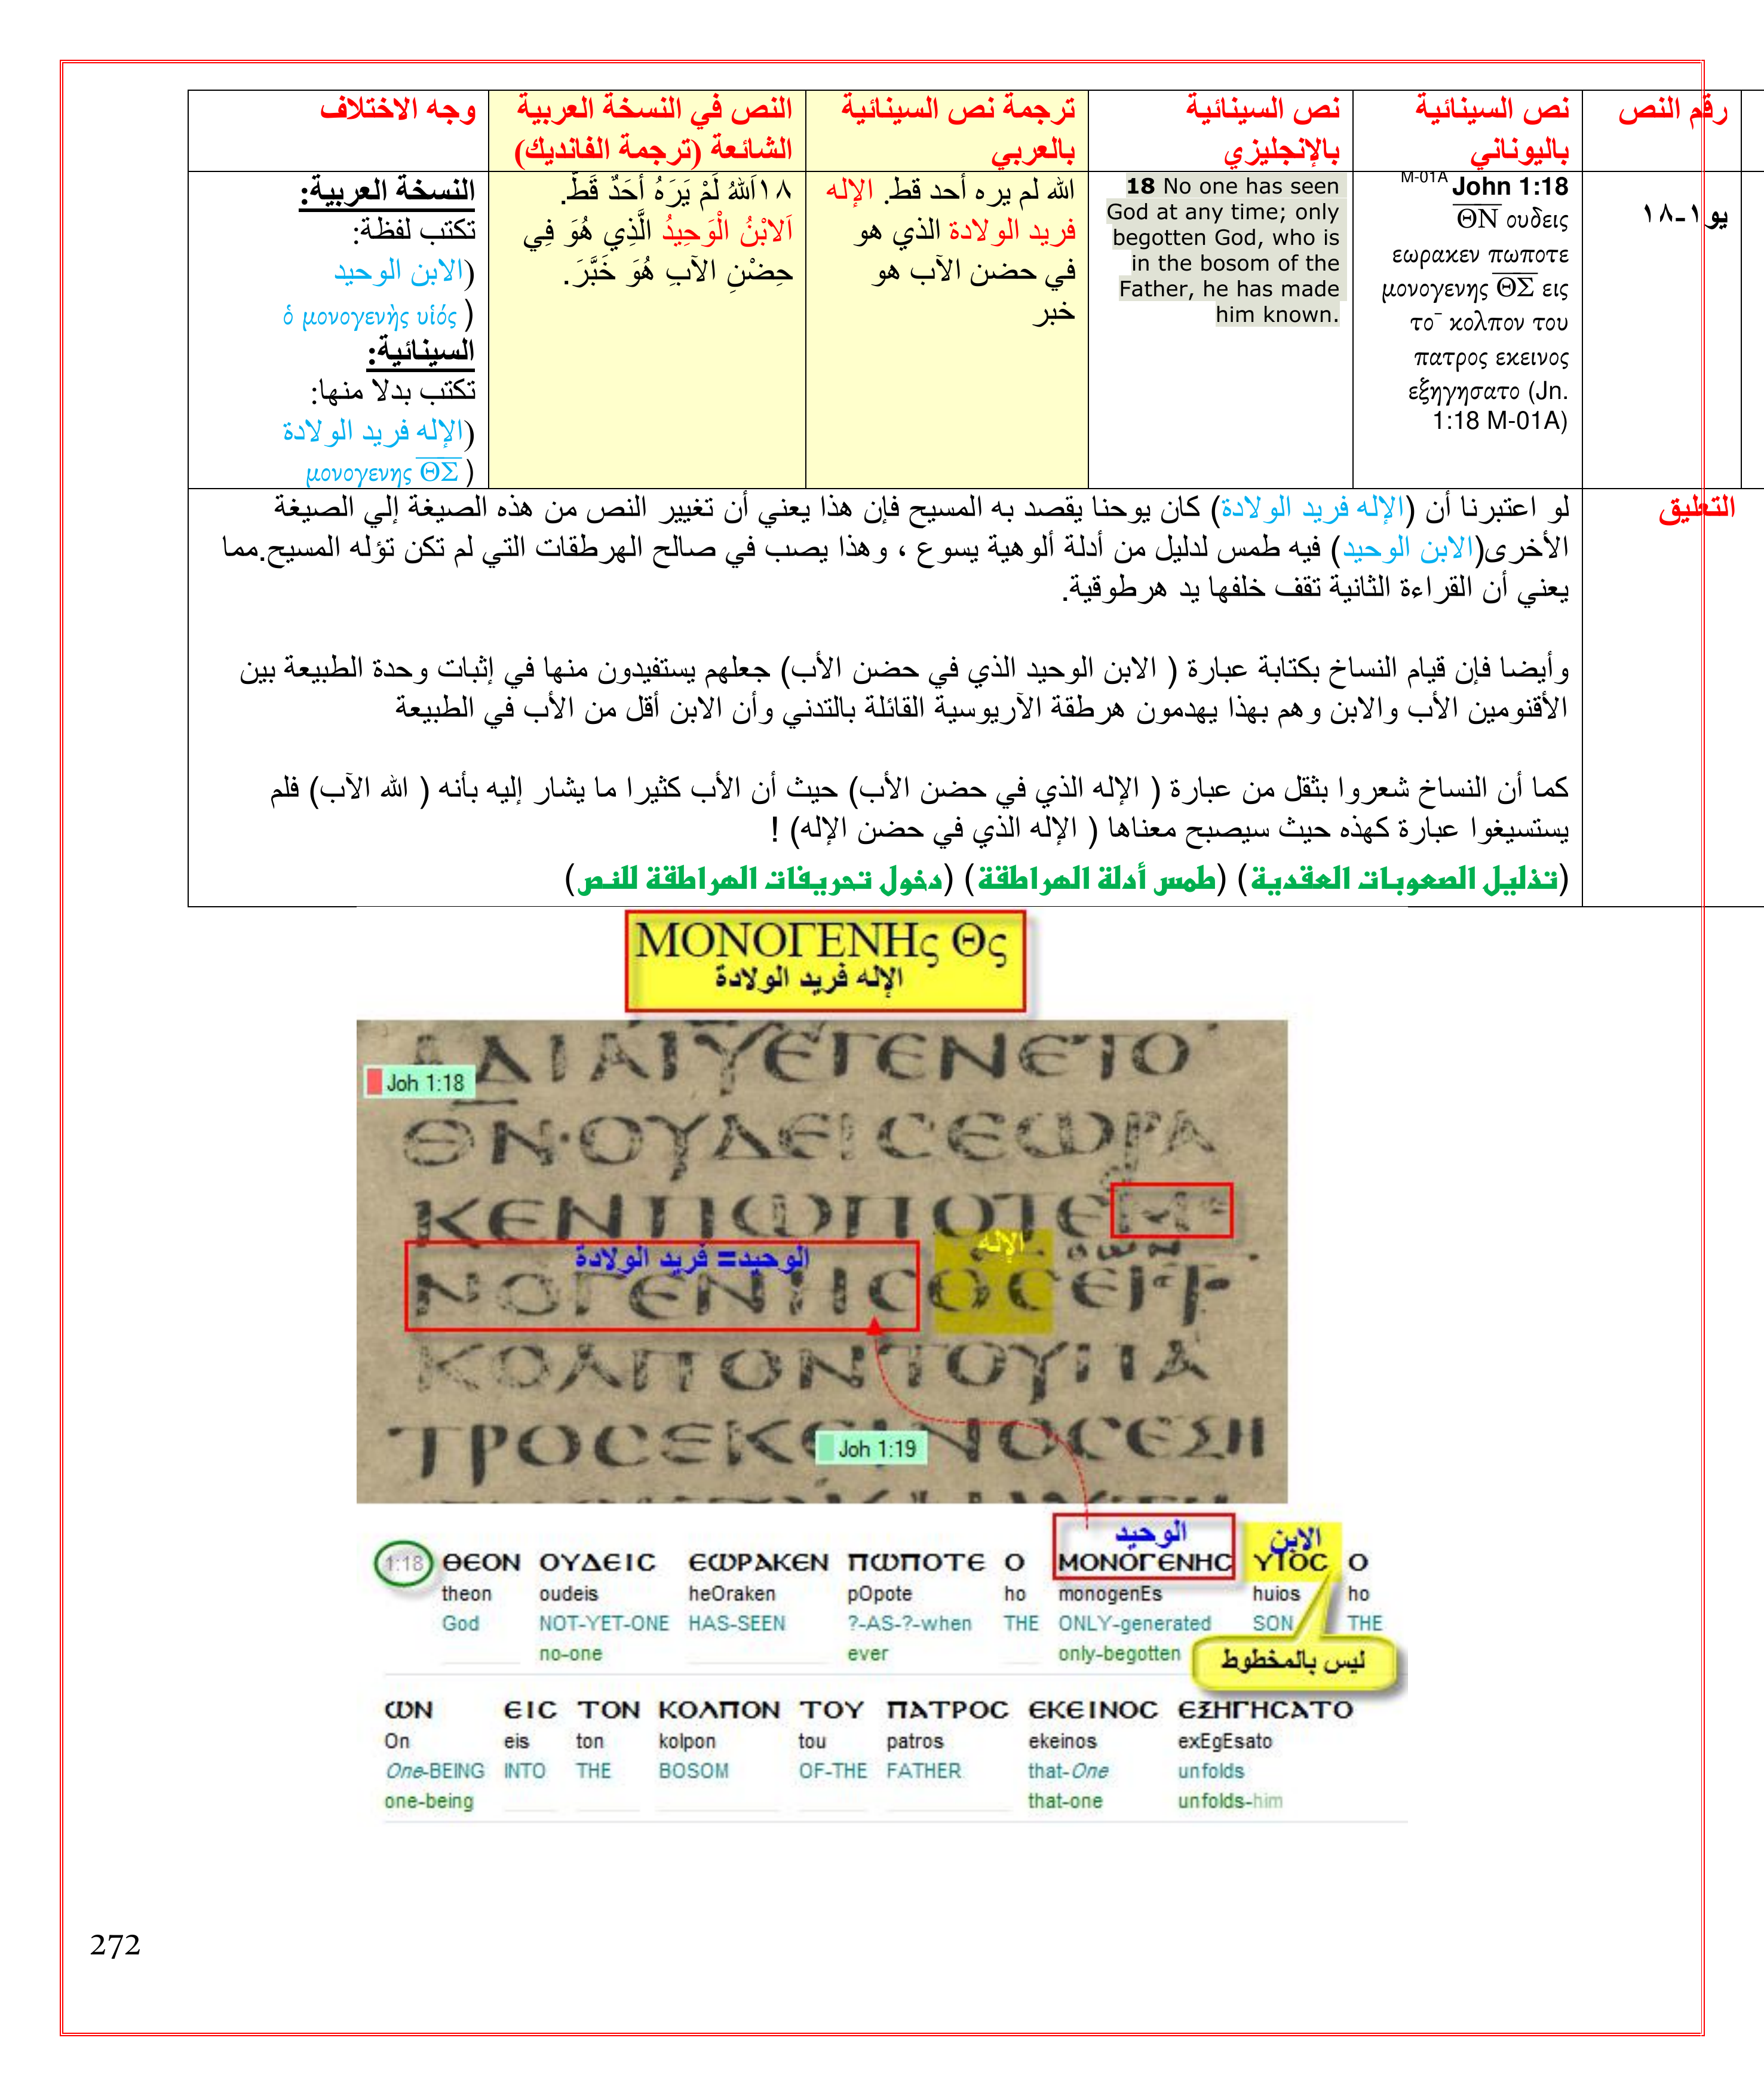 رقم النص
نص السينائية
باليوناني
نص السينائية
بالإنجليزي
ترجمة نص السينائية
بالعربي
النص في النسخة العربية
الشائعة (ترجمة الفانديك)
وجه الاختلاف
يو١-١٨
M-01A John 1:18
ΘΝ ουδεις
εωρακεν πωποτε
μονογενης ΘΣ εις
το¯ κολπον του
πατρος εκεινος
εξηγησατο (Jn.
1:18 M-01A)
18 No one has seen
God at any time; only
begotten God, who is
in the bosom of the
Father, he has made
him known.
الله لم يره أحد قط. الإله
فريد الولادة الذي هو
في حضن الآب هو
خبر
١٨اَللهُ لَمْ يَرَهُ أَحَدٌ قَطُّ.
اَلابْنُ الْوَحِيدُ الَّذِي هُوَ فِي
حِضْنِ الآبِ هُوَ خَبَّرَ.
النسخة العربية:
تكتب لفظة:
(الابن الوحيد
ὁ μονογενὴς υἱός )
السينائية:
تكتب بدلا منها:
(الإله فريد الولادة
μονογενης ΘΣ )
التعليق
لو اعتبرنا أن (الإله فريد الولادة) كان يوحنا يقصد به المسيح فإن هذا يعني أن تغيير النص من هذه الصيغة إلي الصيغة
الأخرى(الابن الوحيد) فيه طمس لدليل من أدلة ألوهية يسوع ، وهذا يصب في صالح الهرطقات التي لم تكن تؤله المسيح.مما
يعني أن القراءة الثانية تقف خلفها يد هرطوقية.
وأيضا فإن قيام النساخ بكتابة عبارة ( الابن الوحيد الذي في حضن الأب) جعلهم يستفيدون منها في إثبات وحدة الطبيعة بين
الأقنومين الأب والابن وهم بهذا يهدمون هرطقة الآريوسية القائلة بالتدني وأن الابن أقل من الأب في الطبيعة
كما أن النساخ شعروا بثقل من عبارة ( الإله الذي في حضن الأب) حيث أن الأب كثيرا ما يشار إليه بأنه ( الله الآب) فلم
يستسيغوا عبارة كهذه حيث سيصبح معناها ( الإله الذي في حضن الإله) !
(تذليل الصعوبات العقدية) (طمس أدلة الهراطقة) (دخول تحريفات الهراطقة للنص)
ΜΟΝΟΓΕΝΗς Θς
الإله فريد الولادة
ΔΙΑΙΥΕΓΕΝΕΤΟ
Joh 1:18
ΘΝ·ΟΥΔΕΙϹΕΩΡΑ
ΚΕΝΠΩΠΟΤΕΜΟ
الوحيد= فريد الولادة
الإله
ΝΟΓΕΝΗϹΘϹΕΙϹΤΟ
ΚΟΛΠΟΝΤΟΥΠΑ
ΤΡΟϹΕΚΕΙΝΟϹΕΞΗ
Joh 1:19
الوحيد
الابن
1:18 ΘΕΟΝ ΟΥΔΕΙϹ ΕΩΡΑΚΕΝ ΠΩΠΟΤΕ Ο ΜΟΝΟΓΕΝΗϹ ΥΙΟϹ Ο
theon oudeis heOraken pOpote ho monogenEs huios ho
God NOT-YET-ONE HAS-SEEN ?-AS-?-when THE ONLY-generated SON THE
no-one ever only-begotten
ليس بالمخطوط
ΩΝ ΕΙϹ ΤΟΝ ΚΟΛΠΟΝ ΤΟΥ ΠΑΤΡΟϹ ΕΚΕΙΝΟϹ ΕΞΗΓΗϹΑΤΟ
On eis ton kolpon tou patros ekeinos exEgEsato
One-BEING INTO THE BOSOM OF-THE FATHER that-One unfolds
one-being that-one unfolds-him
272